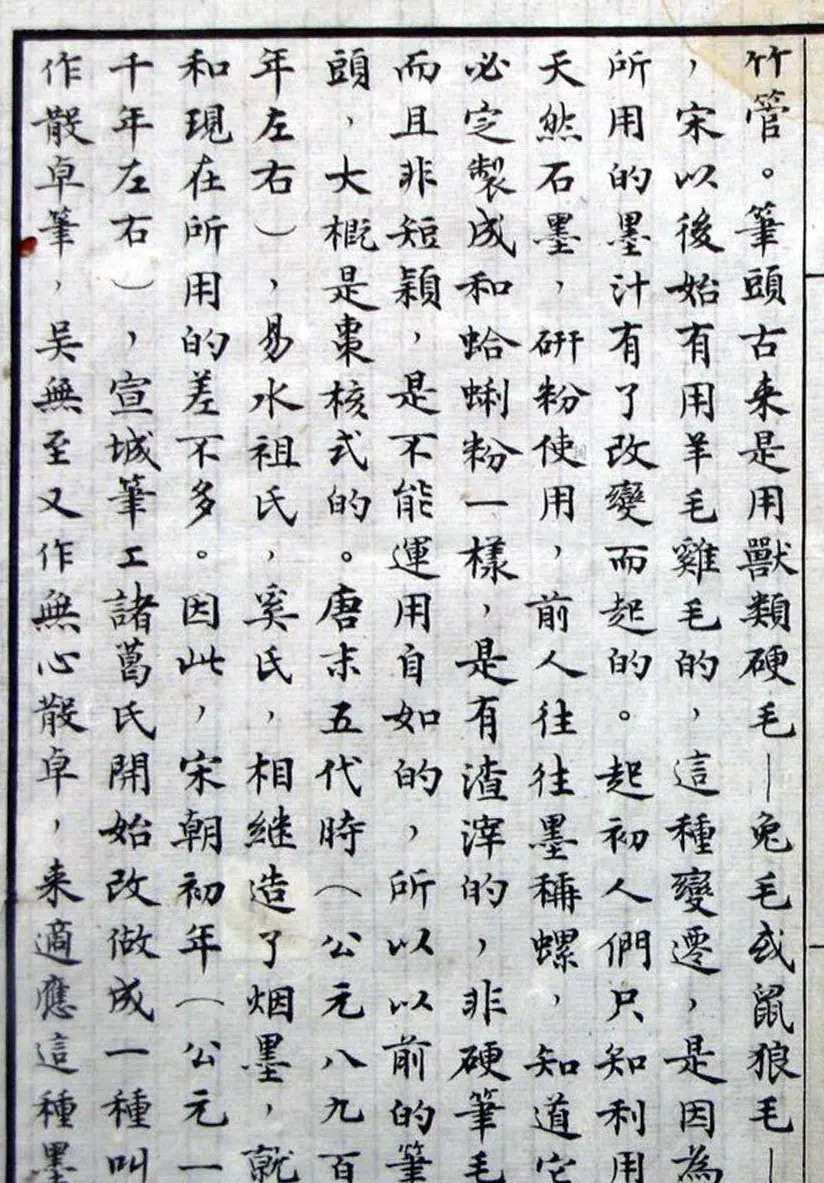 竹管。筆頭古来是用獸類硬毛—兔毛或鼠狼毛—
，宋以後始有用羊毛雞毛的，這種變遷，是因為
所用的墨汁有了改變而起的。起初人們只知利用
天然石墨，研粉使用，前人往往墨稱螺，知道它
必定製成和蛤蜊粉一樣，是有渣滓的，非硬筆毛
而且非短穎，是不能運用自如的，所以以前的筆
頭，大概是棗核式的。唐末五代時（公元八九百
年左右），易水祖氏，奚氏，相継造了烟墨，就
和現在所用的差不多。因此，宋朝初年（公元一
千年左右），宣城筆工諸葛氏開始改做成一種叫
作散卓筆，吴無至又作無心散卓，来適應這種墨